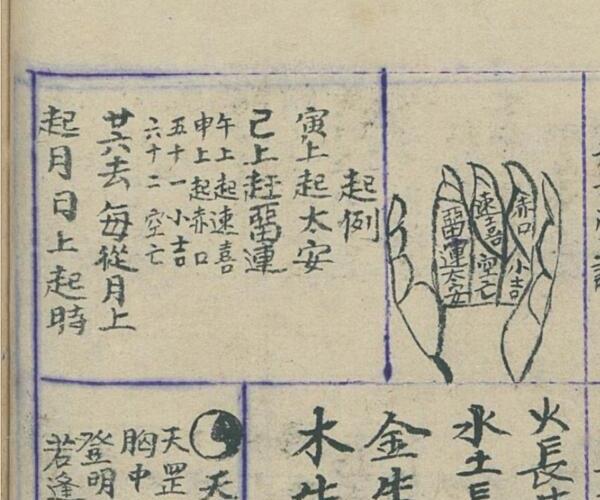 赤口
小吉
速喜
空亡
畱連
太安
起例
寅上起太安
己上起畱連
午上起速喜
申上起赤口
五十一小吉
六十二空亡
廿六去每從月上
起月日上起時
火長
水土長
金生
木生
天
天罡
胸中
登明
若逢